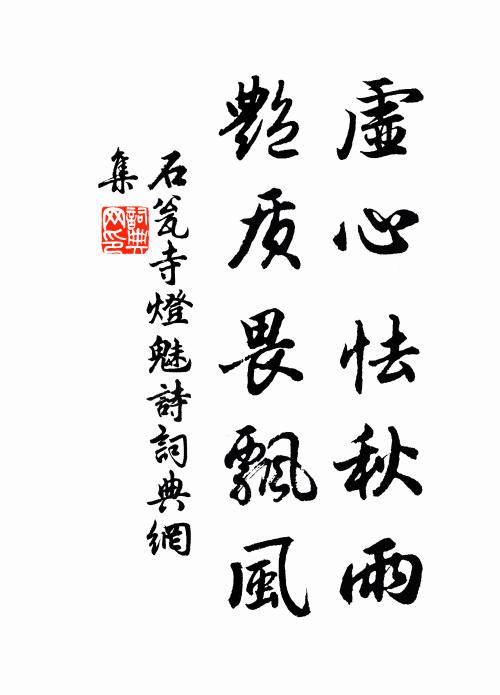 虛心怯秋雨
艷质畏飄風
石瓮寺燈魅詩詞典網
集
詞典
网印